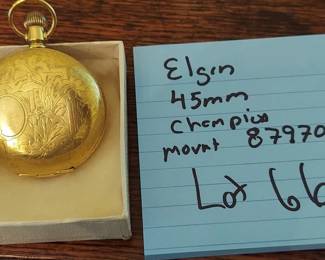 Elgin
45mm
Champion
mount 87970
Lot 66